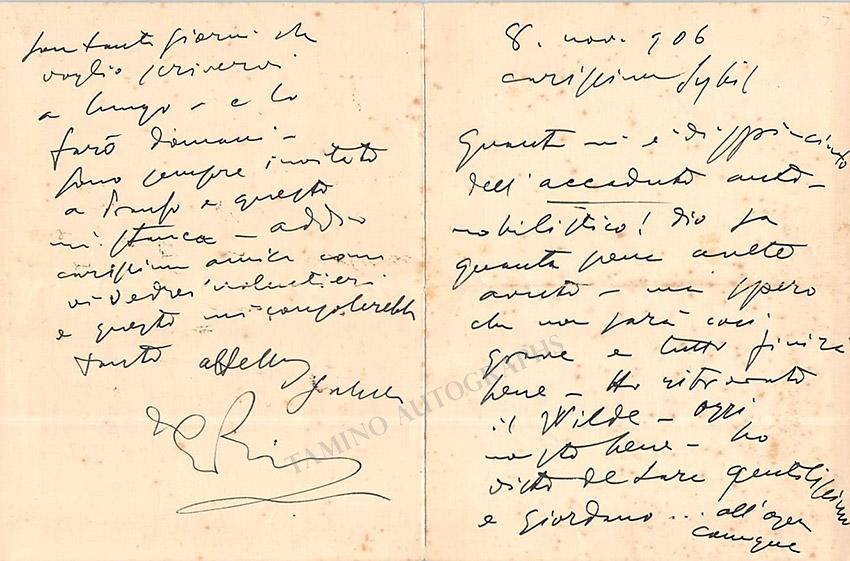 8. nov. 906
carissima Sybil
Quanto mi è dispiaciuto
dell'accaduto auto-
mobilistico! Dio sa
quanta pena avete
avuto - ma spero
che non sarà così
grave e tutto finirà
bene - Ho ritrovato
il Wilde - oggi
sto bene - ho
visto De Lara gentilissimo
e Giordano... all'opera
comique
son tanti giorni che
voglio scrivervi
a lungo - e lo
farò domani -
sono sempre invitato
a pranzo e questo
mi stanca - addio
carissima amica come
vi vedrei volentieri
e questo mi consolerebbe
tanto
TAMINO AUTOGRAPHS